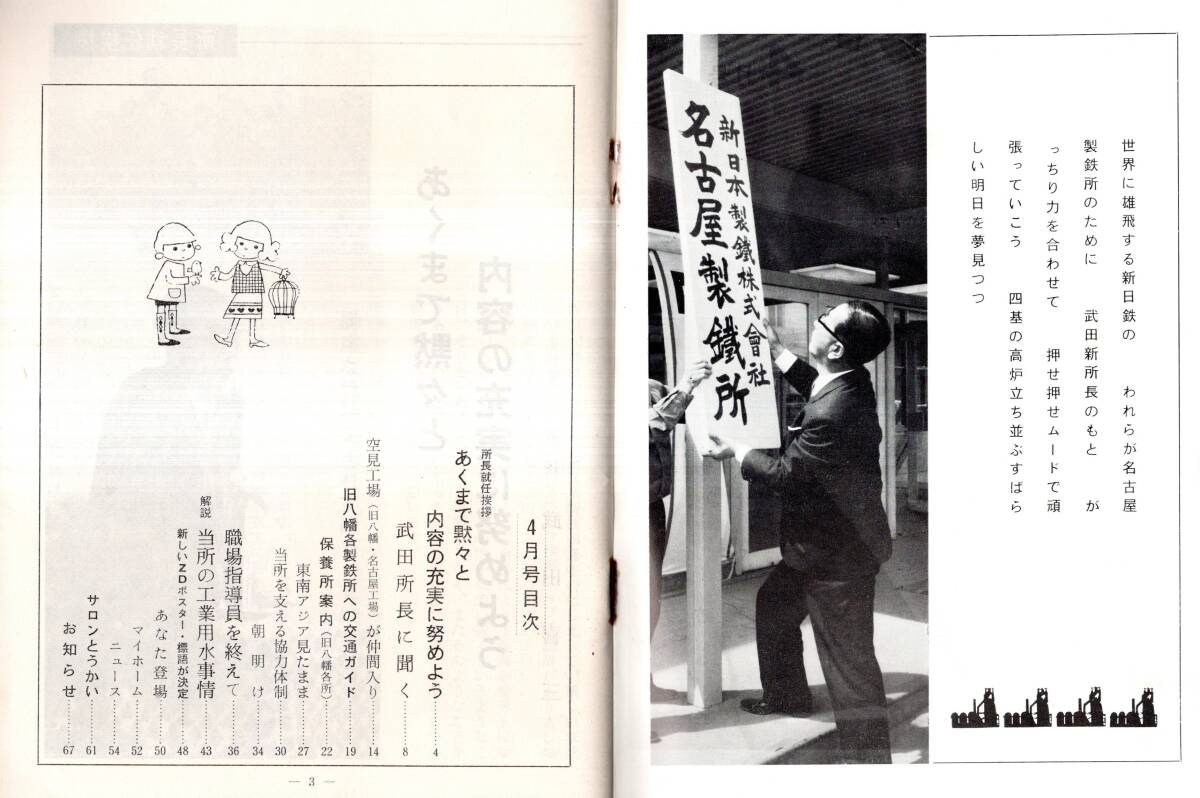 世界に雄飛する新日鉄の　われらが名古屋
製鉄所のために　武田新所長のもと　が
っちり力を合わせて　押せ押せムードで頑
張っていこう　四基の高炉立ち並ぶすばら
しい明日を夢見つつ
新日本製鐵株式會社
名古屋製鐵所
4月号目次
所長就任挨拶
あくまで黙々と
内容の充実に努めよう……4
武田所長に聞く……8
空見工場（旧八幡・名古屋工場）が仲間入り……14
旧八幡各製鉄所への交通ガイド……19
保養所案内（旧八幡各所）……22
東南アジア見たまま……27
当所を支える協力体制……30
朝明け……34
職場指導員を終えて……36
解説 当所の工業用水事情……43
新しいZDポスター・標語が決定……48
あなた登場……50
マイホーム……52
ニュース……54
サロンとうかい……61
お知らせ……67
— 3 —